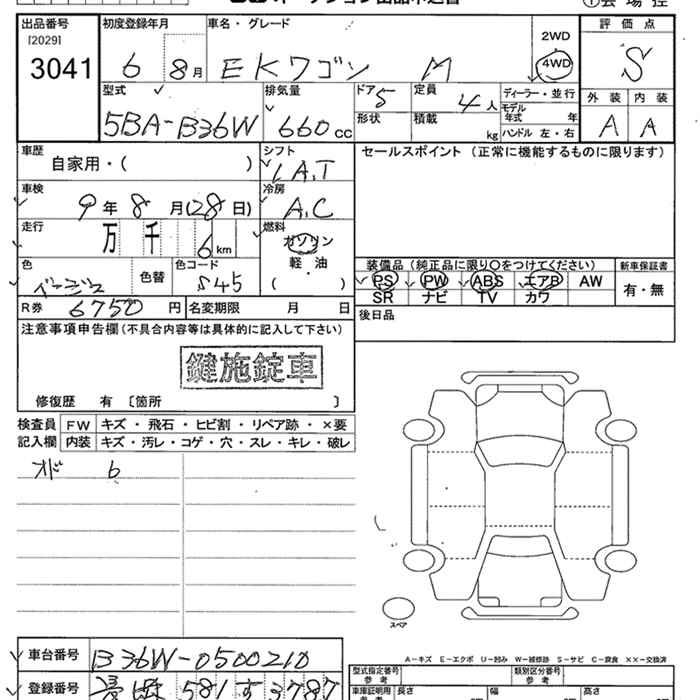 出品番号 初度登録年月 車名・グレード 評価点
[2029]
3041 6 8月 EKワゴン M 2WD 4WD S
型式 排気量 ドア 定員 ディーラー・並行 外装 内装
5BA-B36W 660cc 5 4人 モデル年式 年 A A
形状 積載 kg ハンドル 左・右
車歴 シフト セールスポイント (正常に機能するものに限ります)
自家用・( ) A.T
車検 冷房
9年 8月 (28日) A.C
走行 燃料
万 千 6 km ガソリン
軽・油
( )
色 色替 色コード S45
装備品 (純正品に限り〇をつけてください) 新車保証書
PS PW ABS エアB AW 有・無
SR ナビ TV カワ
R券 6750円 名変期限 月 日
後日品
注意事項申告欄(不具合内容等は具体的に記入して下さい)
鍵施錠車
修復歴 有 〔箇所 〕
検査員 FW キズ・飛石・ヒビ割・リペア跡・×要
記入欄 内装 キズ・汚レ・コゲ・穴・スレ・キレ・破レ
オド 6
スペア
A-キズ E-エクボ U-凹み W-補修跡 S-サビ C-腐食 XX-交換済
車台番号 B36W-0500210
型式指定番号 参考 類別区分番号 参考
登録番号 581 す 3787
車庫証明用 参考 長さ 幅 高さ